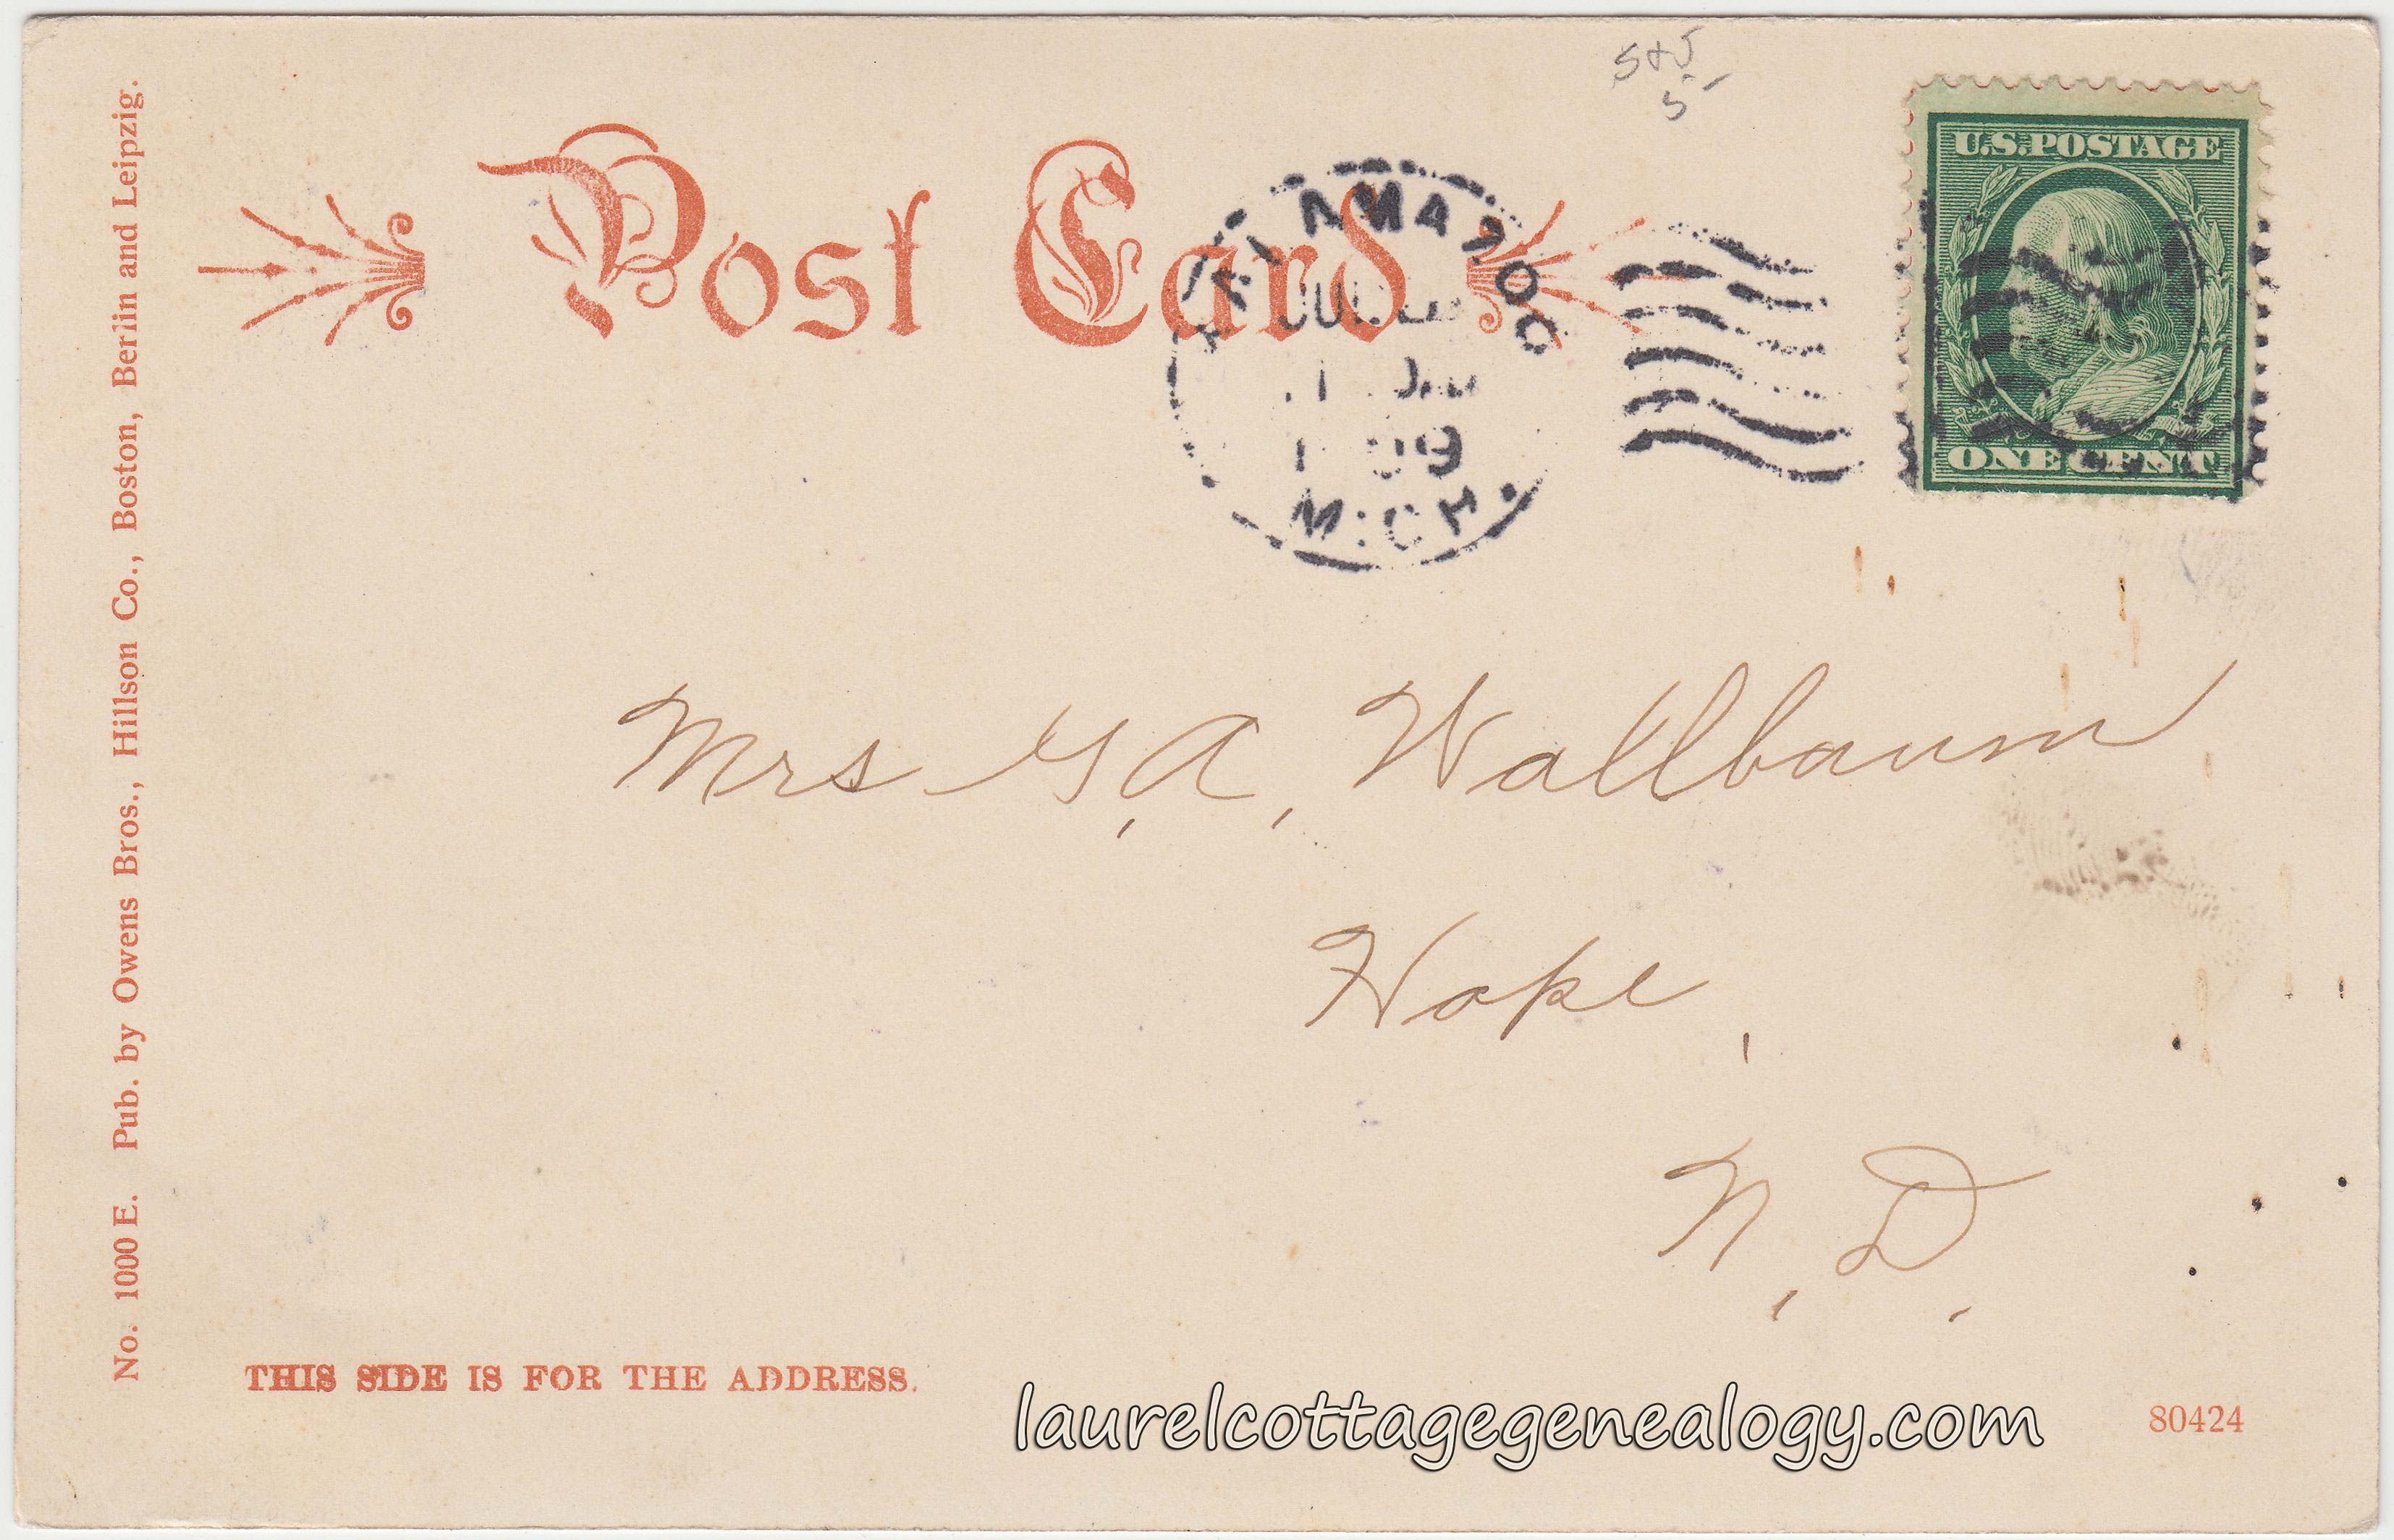 No. 1000 E. Pub. by Owens Bros., Hillson Co., Boston, Berlin and Leipzig.
Post Card
KALAMAZOO
JUL
09
MICH.
U.S. POSTAGE
ONE CENT
Mrs G, A, Wallbaum
Hope,
N, D,
THIS SIDE IS FOR THE ADDRESS.
laurelcottagegenealogy.com
80424